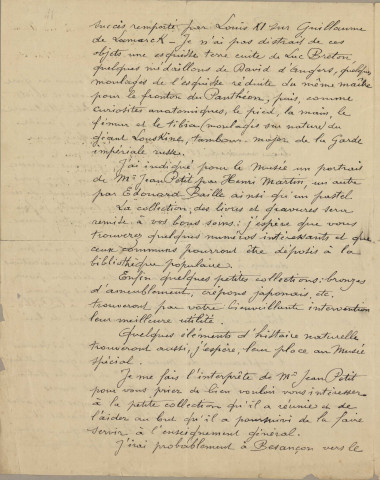 succès remporté par Louis XI sur Guillaume
de Lamarck - Je n'ai pas distrait de ces
objets une esquisse terre cuite de Luc Breton
quelques médaillons de David d'Angers, quelques
moulages de l'esquisse réduite du même maître
pour le fronton du Panthéon; puis, comme
curiosités anatomiques, le pied, la main, le
fémur et le tibia (moulages sur nature) du
géant Louskine, tambour-major de la Garde
impériale russe.
J'ai indiqué pour le Musée un portrait
de Mr Jean Petit par Henri Martin, un autre
par Edouard Baille ainsi qu'un pastel.
La collection des livres et gravures sera
remise à vos bons soins: j'espère que vous
trouverez quelques numéros intéressants et que
ceux communs pourront être déposés à la
bibliothèque populaire.
Enfin quelques petites collections: bronzes
d'ameublement, crépons japonais, etc.
trouveront par votre bienveillante intervention
leur meilleure utilité.
Quelques éléments d'histoire naturelle
trouveront aussi, j'espère, leur place au Musée
spécial.
Je me fais l'interprète de Mr Jean Petit
pour vous prier de bien vouloir vous intéresser
à la petite collection qu'il a réunie et de
l'aider au but qu'il a poursuivi de la faire
servir à l'enseignement général.
J'irai probablement à Besançon vers le